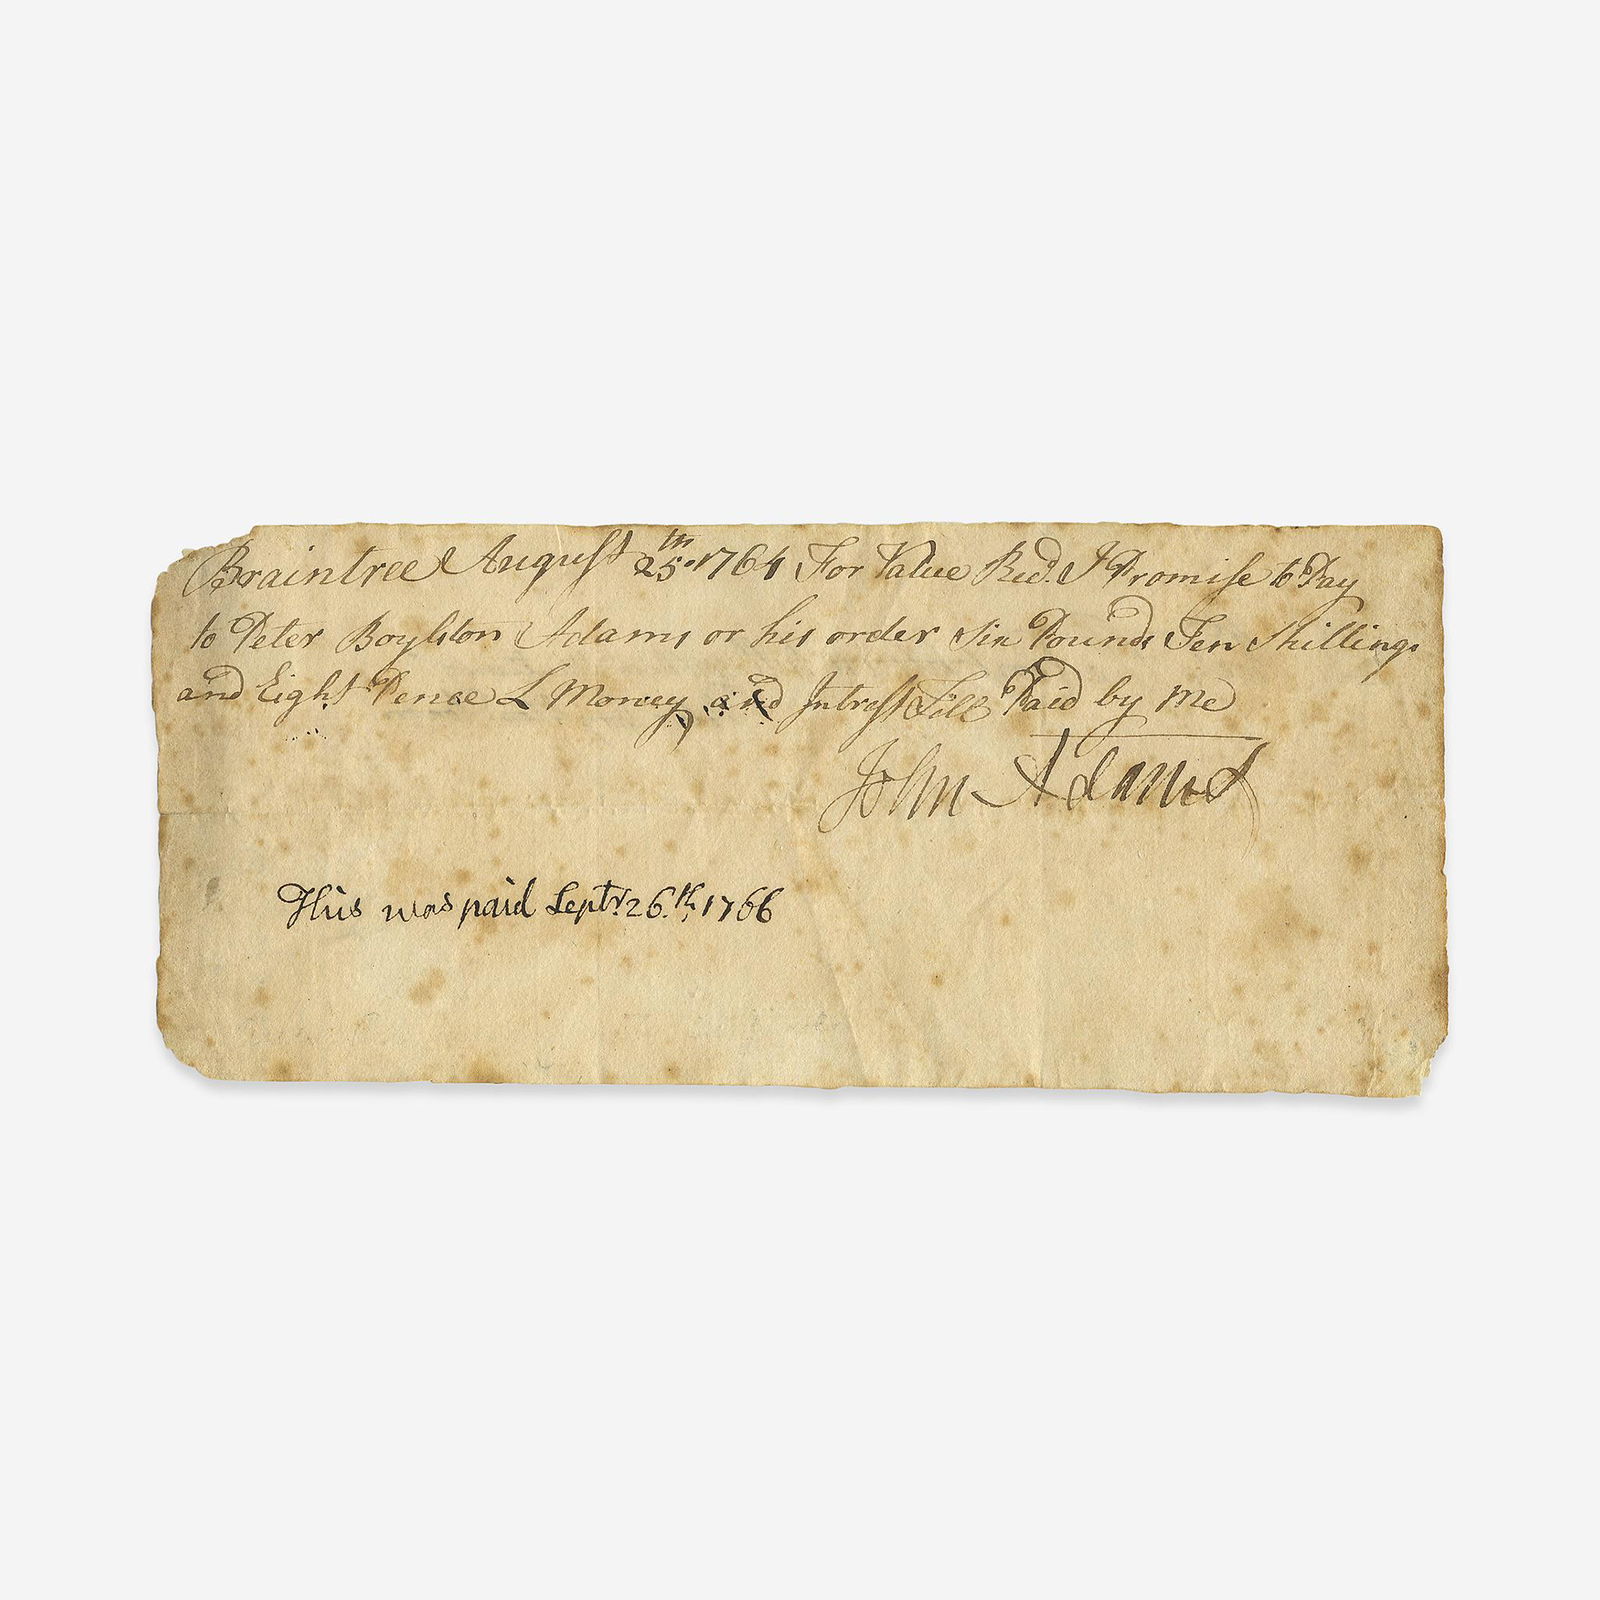 Braintree August 25th. 1764 For Value Recd. I Promise to Pay
to Peter Boylston Adams or his order Six Pounds Ten Shillings
and Eight Pence L Money and Intrest Till Paid by me
John Adams
This was paid Septr. 26.th, 1766